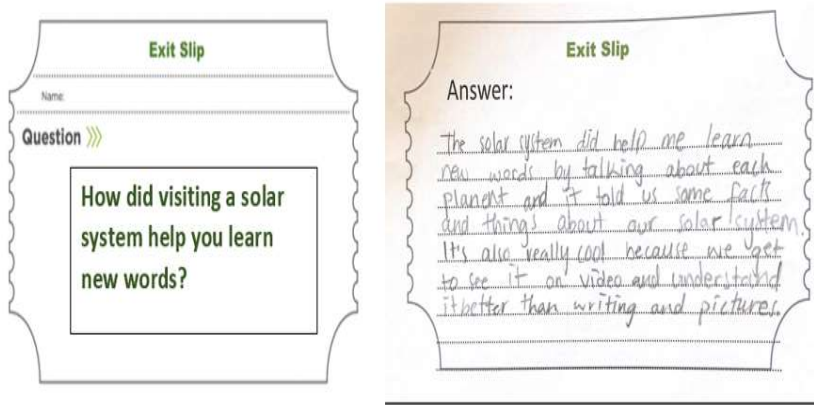 Exit Slip
Name:
Question
How did visiting a solar
system help you learn
new words?
Exit Slip
Answer:
The solar system did help me learn
new words by talking about each
planent and it told us some facts
and things about our solar system.
It's also really cool because we get
to see it on video and understand
it better than writing and pictures.